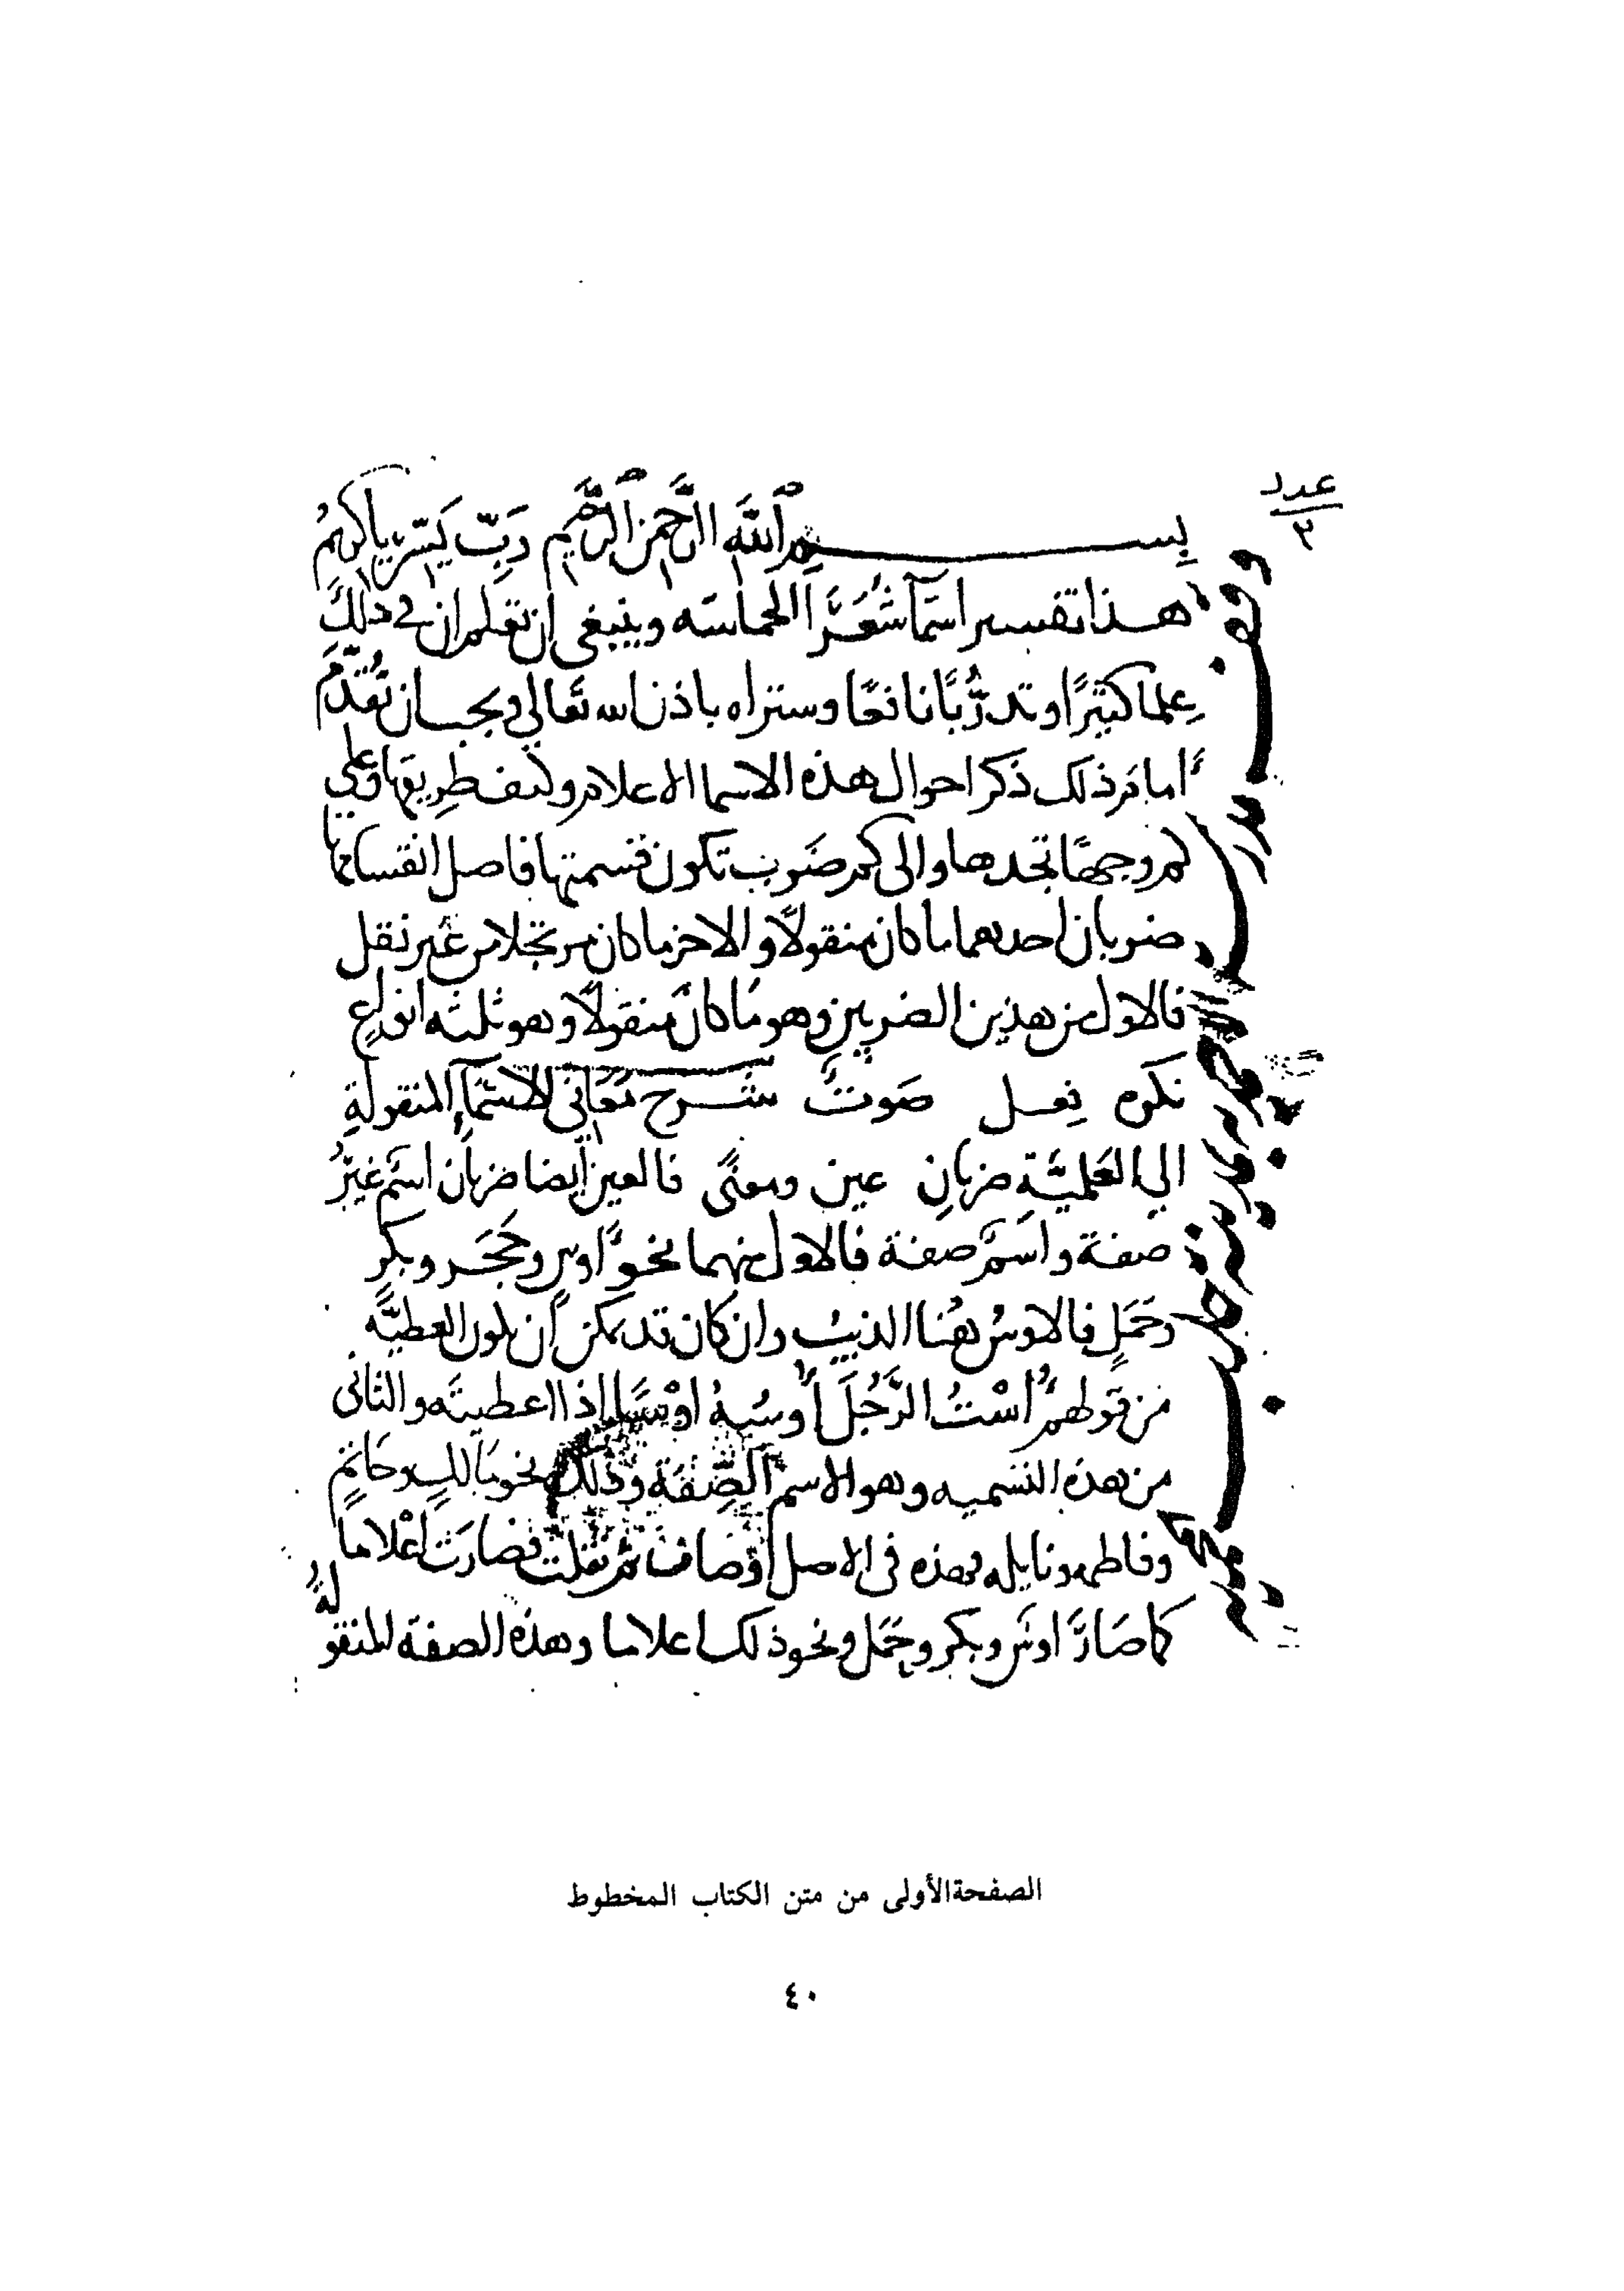 عدد
٣
بسم الله الرحمن الرحيم رَبِّ يَسِّر يا كريمُ
هذا تفسير اسمآ شُعَرَا الحماسه وينبغى ان تعلم ان فى ذلك
عِلما كثيرًا وتدرُّبًا نافعًا وستراه باذن الله تعَالي ويجب ان نُقدّمَ
أمام ذلك ذكر احوال هذه الاسما الاعلام وكيف طريقها وعلى
كم وجهًا تجدها والى كم ضَرب تكون قسمتها فاصل انقسامها
ضربان احدهما ما كان منقولًا والاخر ما كان مرتجلا من غير نقل
فالاول من هذين الضربين وهو مَا كان منقولًا وهو ثلثه انواع
نكره فِعل صَوت شرح مَعَانى الاسْمَآ المنقولةِ
الي العَلميَّة ضربانِ عين ومعنًى فالعين ايضا ضربان اسم غيرُ
صفة واسم صفة فالاول منهما نحو اوس وحَجَر وبكر
وحَمَلٍ فالاوسُ هُنا الذيب وان كان قد يمكن أن يكون العطيَّه
من قولهم أُسْتُ الرَّجُلَ أوسُهُ اوْسًا اذا اعطيته والثانى
من هذه القسميه وهو الاسم الصِّفَة وذلك نحو مَالكٍ وحَاتمٍ
وفاطمه ونايله فهذه فى الاصل أوْصاف ثم نقلت فصارَت اعْلامًا
كما صَارَ اوس وبكر وحَمَل ونحو ذلك اعلاما وهذه الصفة المنقولةُ
الصفحة الأولى من متن الكتاب المخطوط
٤٠